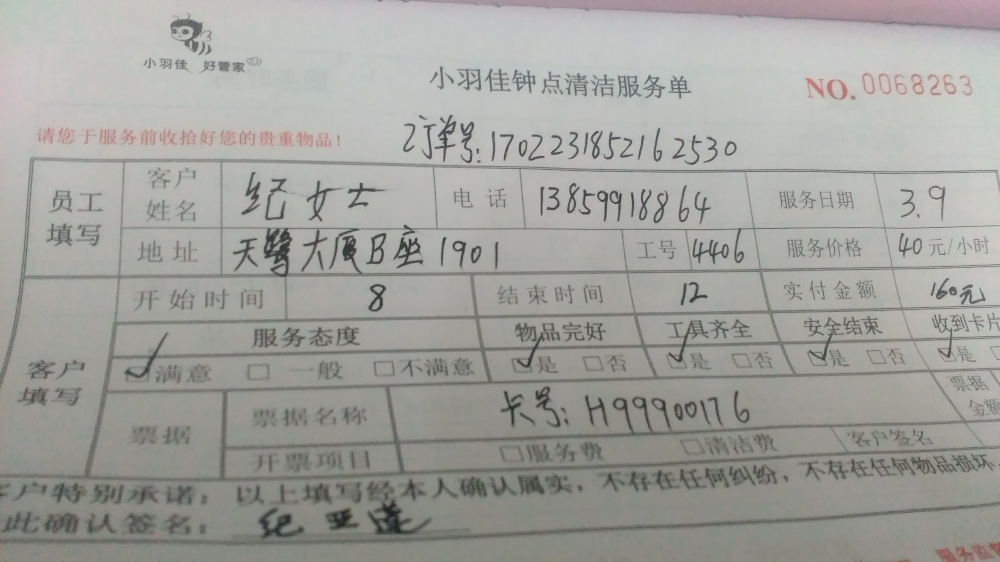 小羽佳 好管家
小羽佳钟点清洁服务单 NO.0068263
请您于服务前收拾好您的贵重物品！ 订单号:1702231852162530
员工填写 客户姓名 纪女士 电话 13859918864 服务日期 3.9
地址 天鹭大厦B座1901 工号 4406 服务价格 40元/小时
客户填写 开始时间 8 结束时间 12 实付金额 160元
服务态度 物品完好 工具齐全 安全结束 收到卡片
满意 一般 不满意 是 否 是 否 是 否 是
票据 票据名称 卡号:H99900176 票据金额
开票项目 服务费 清洁费 客户签名
客户特别承诺：以上填写经本人确认属实，不存在任何纠纷，不存在任何物品损坏
此确认签名：纪亚莲
服务监督